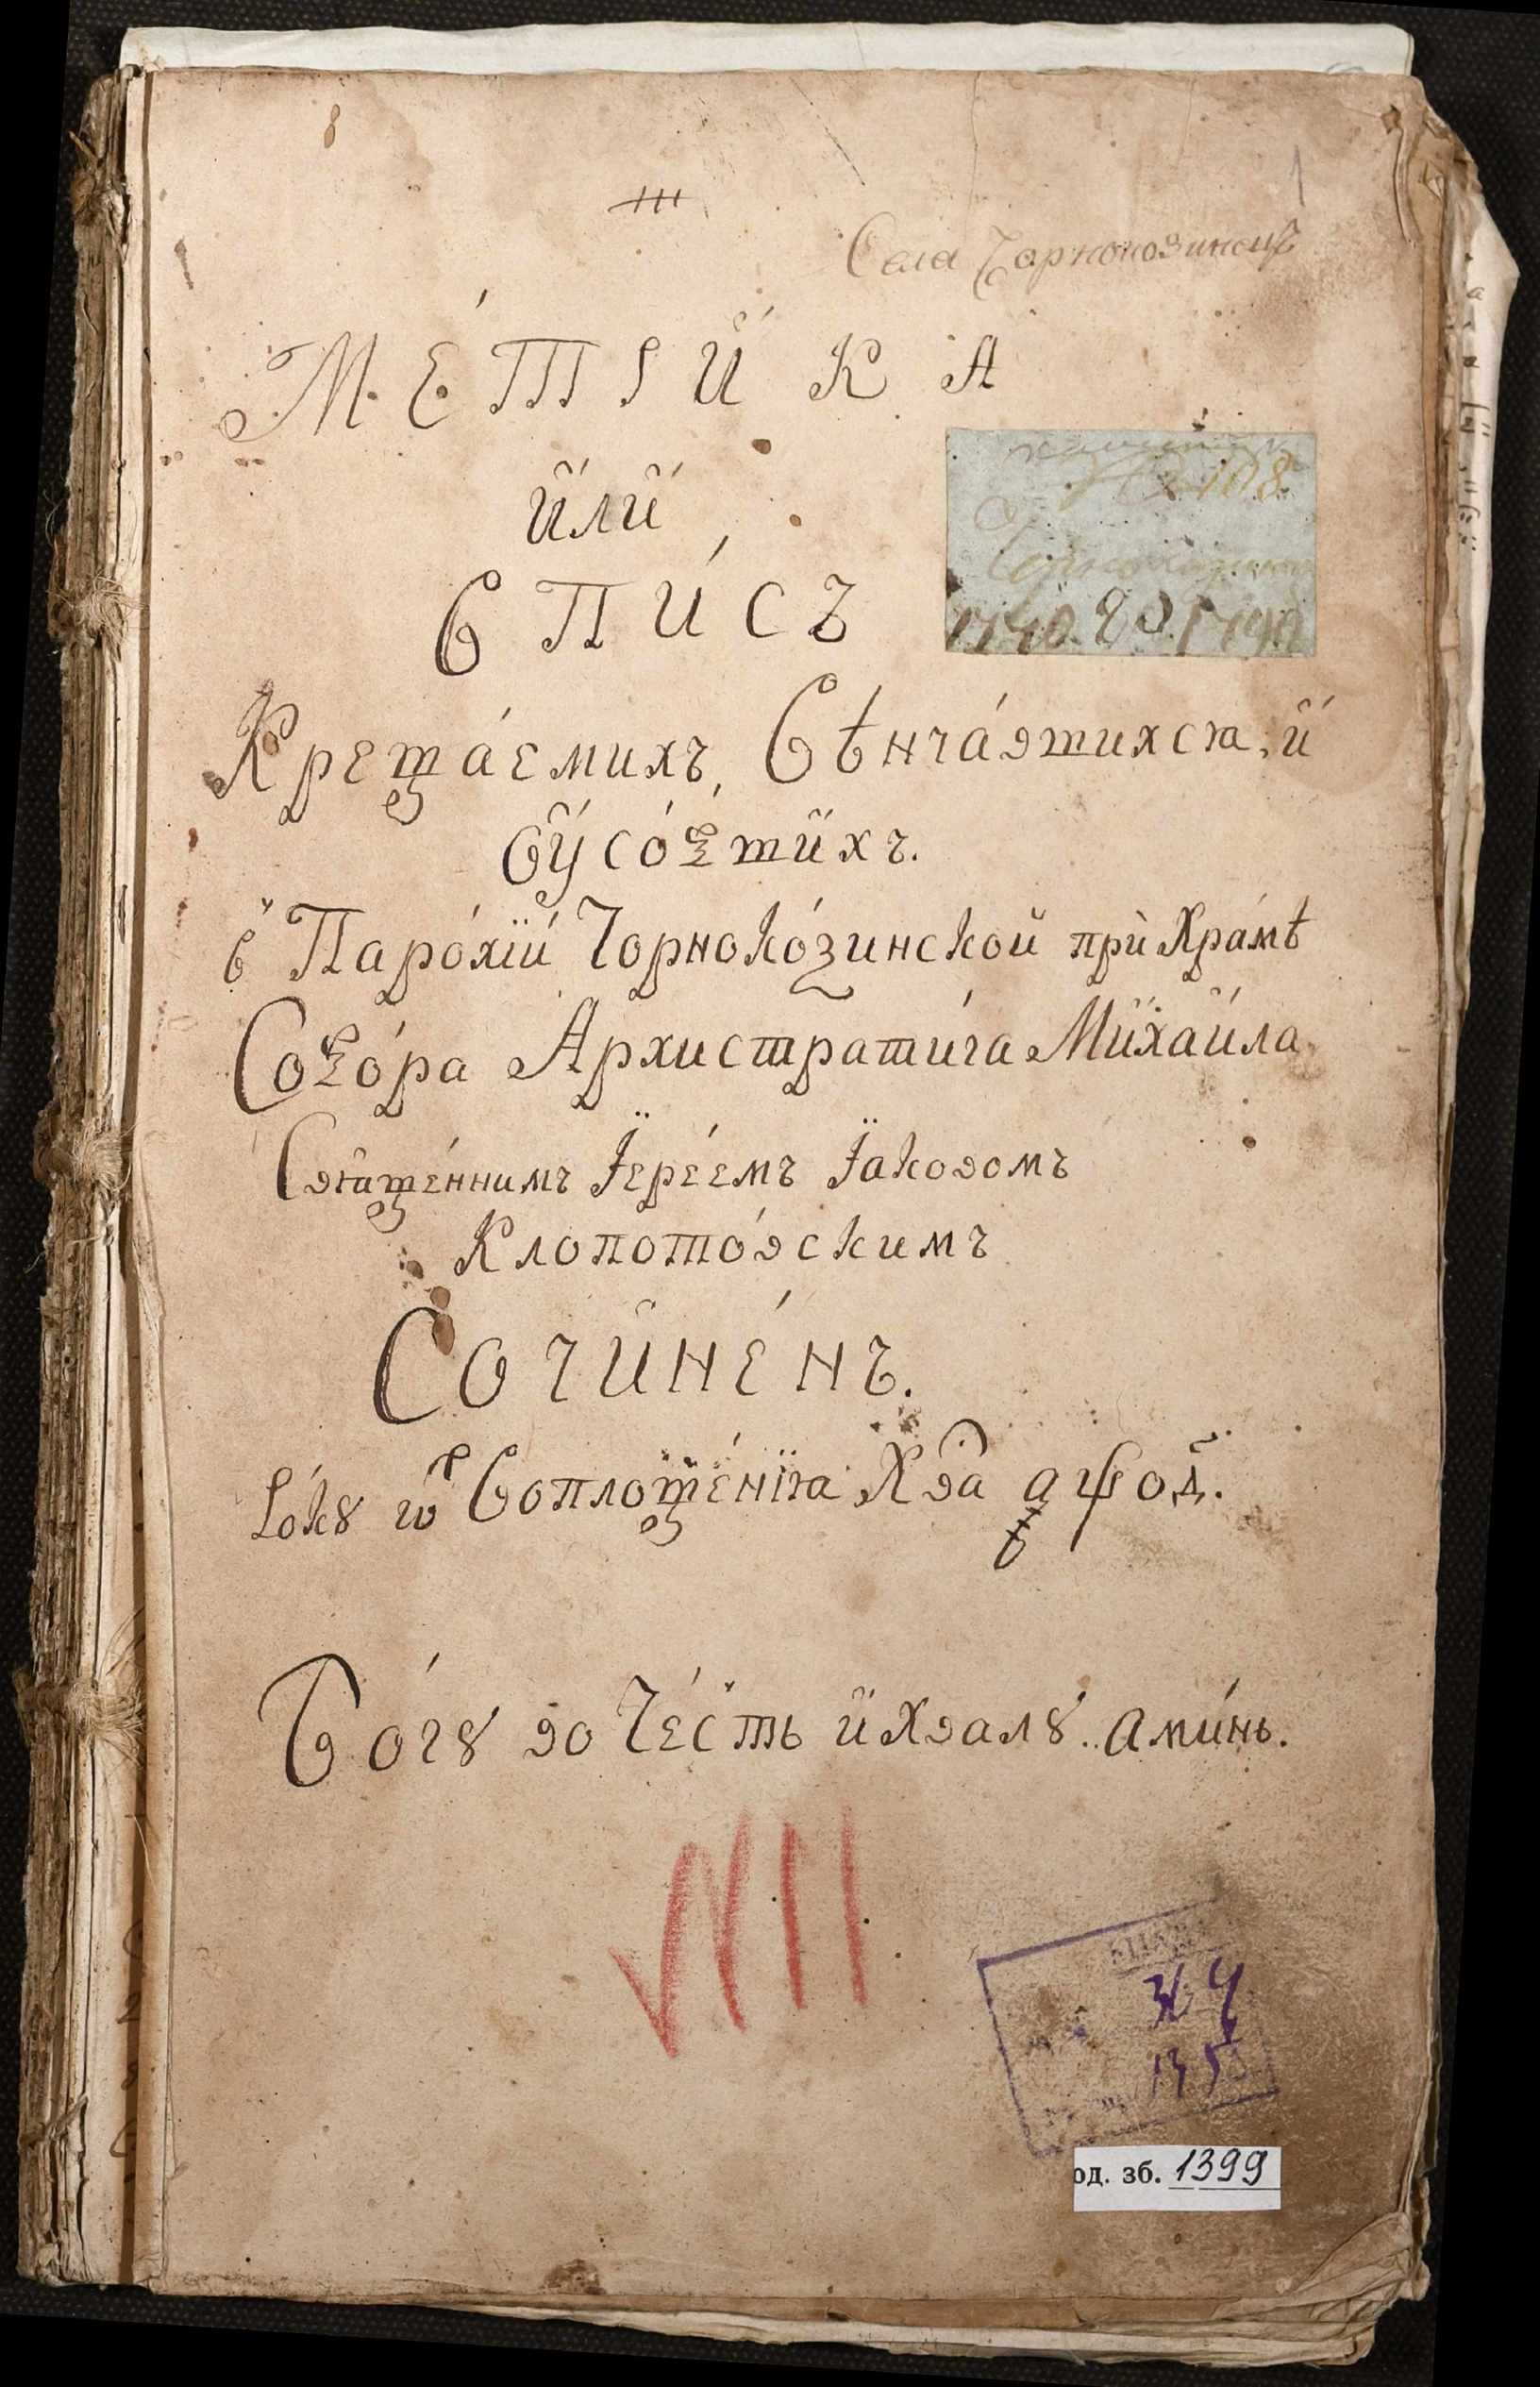 1
Села Чорнокозинецъ
МЕ́ТРИ̋КА
и̋ли̋
ВПИ́СЪ
Крещáемихъ, Вѣнчáвшихся, и̋
Оӳсóбшихъ.
в̋ Парóхїи́ Чорнокóзинской прѝ Хрáмѣ
Собóра Архистрати́га Миха́ила
Свяще́ннимъ Їере́емъ Їаковомъ
Клопото́вскимъ
Сочине́нъ.
Ро́кꙋ ѿ Воплоще́нїѧ Хв҃а ҂аѱо҃д.
Бо́гꙋ во Че́сть и̋ Хвалꙋ̀. Ами́нь.
VII
од. зб. 1399